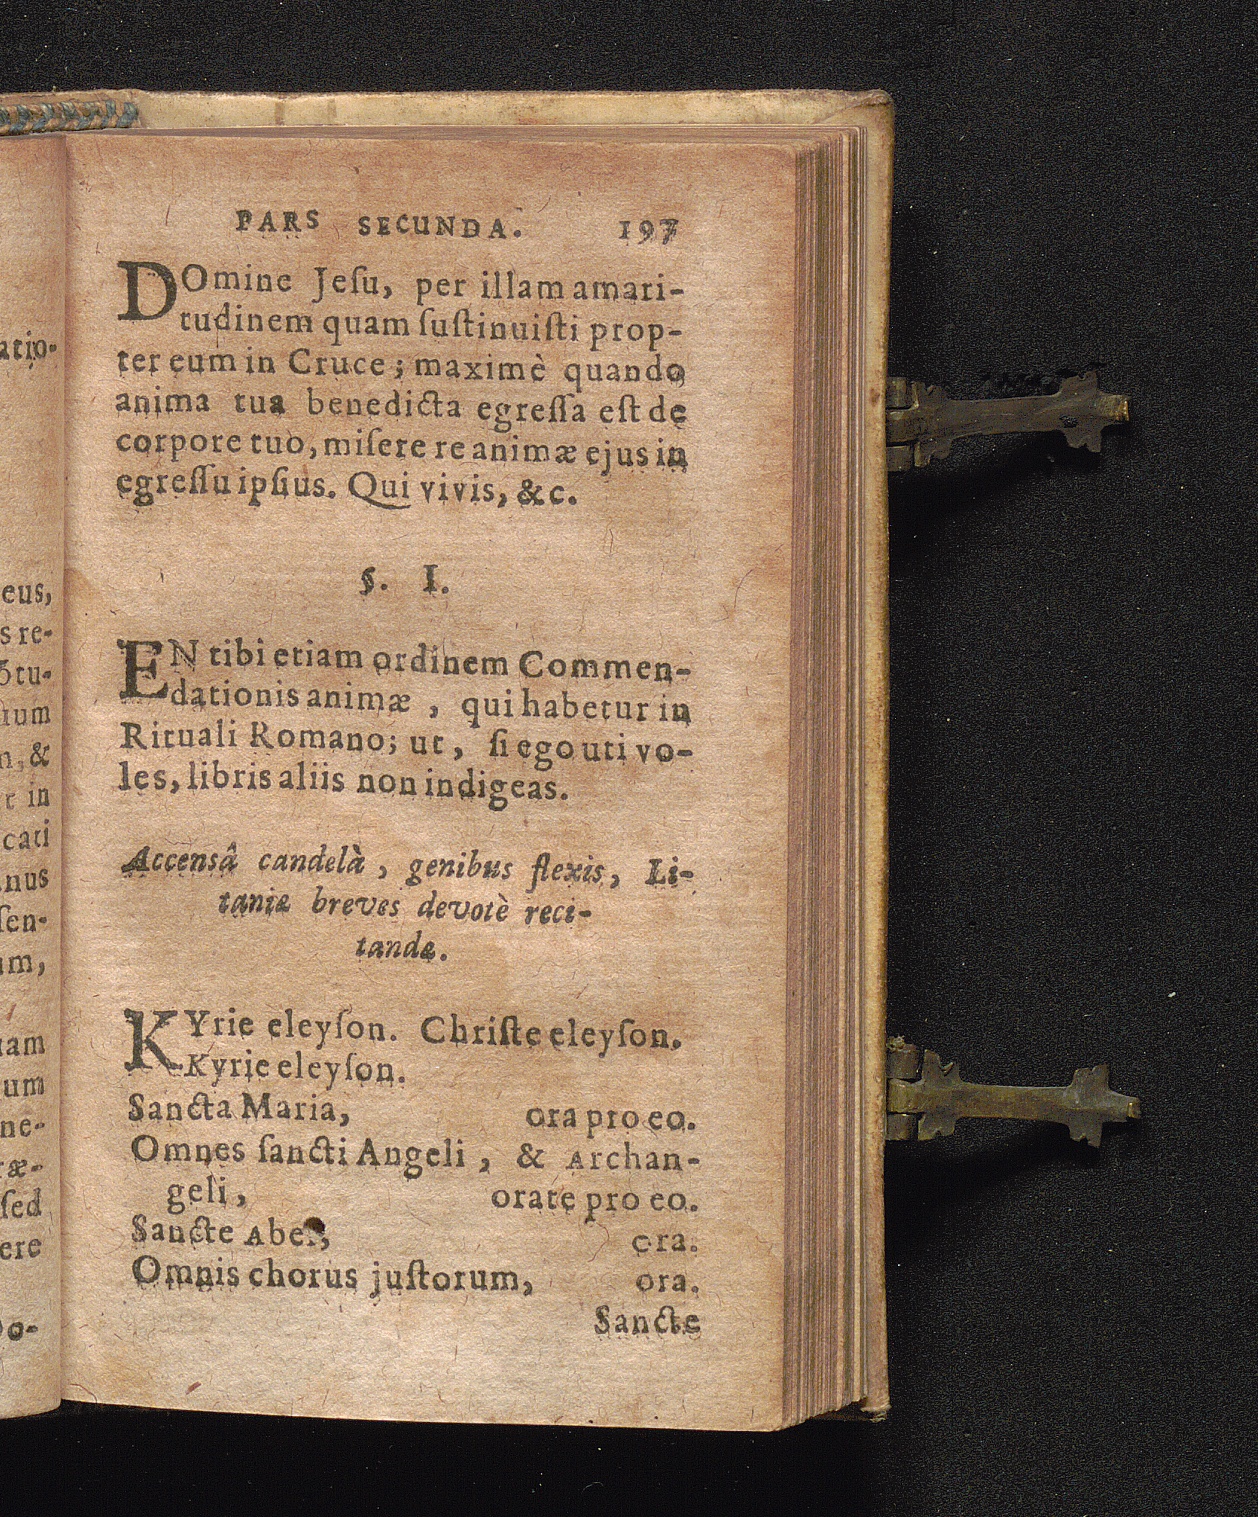 PARS SECUNDA. 197
DOmine Jeſu, per illam amari-
tudinem quam ſuſtinuiſti prop-
ter eum in Cruce; maximè quando
anima tua benedicta egreſſa eſt de
corpore tuo, miſere re animæ ejus in
egreſſu ipſius. Qui vivis, &c.
§. I.
EN tibi etiam ordinem Commen-
dationis animæ, qui habetur in
Rituali Romano; ut, ſi ego uti vo-
les, libris aliis non indigeas.
Accensâ candelà, genibus flexis, Li-
taniæ breves devotè reci-
tandæ.
KYrie eleyſon. Chriſte eleyſon.
Kyrie eleyſon.
Sancta Maria, ora pro eo.
Omnes ſancti Angeli, & Archan-
geli, orate pro eo.
Sancte Abel, ora.
Omnis chorus juſtorum, ora.
Sancte
atio-
eus,
s re-
õtu-
ium
n, &
t in
cati
nus
ſen-
um,
uam
um
ne-
ræ-
ſed
ere
Do-